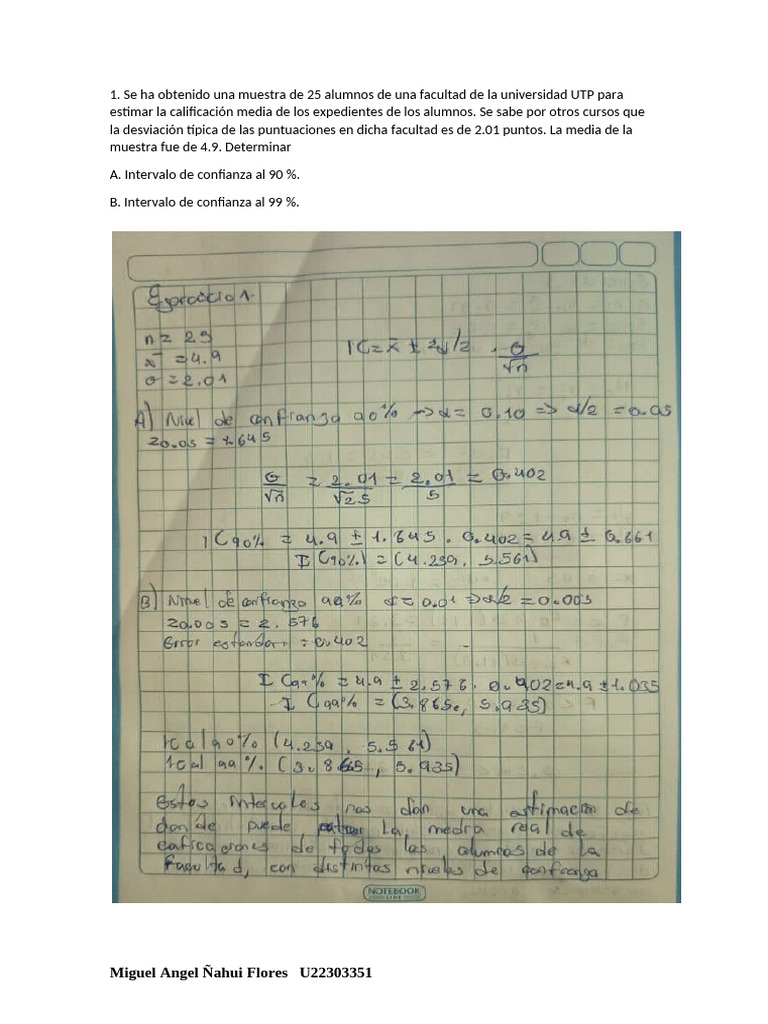 1. Se ha obtenido una muestra de 25 alumnos de una facultad de la universidad UTP para
estimar la calificación media de los expedientes de los alumnos. Se sabe por otros cursos que
la desviación típica de las puntuaciones en dicha facultad es de 2.01 puntos. La media de la
muestra fue de 4.9. Determinar
A. Intervalo de confianza al 90 %.
B. Intervalo de confianza al 99 %.
Ejercicio 1.
n = 25
x̄ = 4.9
σ = 2.01
IC = x̄ ± zα/2 . σ/√n
A) Nivel de confianza 90% → α = 0.10 => α/2 = 0.05
z0.05 = 1.645
σ/√n = 2.01/√25 = 2.01/5 = 0.402
IC90% = 4.9 ± 1.645 . 0.402 = 4.9 ± 0.661
IC90%) = (4.239, 5.561)
B) Nivel de confianza 99% α = 0.01 => α/2 = 0.005
z0.005 = 2.576
Error estandar = 0.402
IC99% = 4.9 ± 2.576 . 0.402 = 4.9 ± 1.035
IC99% = (3.865, 5.935)
IC al 90% (4.239, 5.561)
IC al 99%. (3.865, 5.935)
Estos intervalos nos dan una estimación de
donde puede la media real de
calificaciones de todos los alumnos de la
facultad, con distintos niveles de confianza
NOTEBOOK
LINE
Miguel Angel Ñahui Flores U22303351